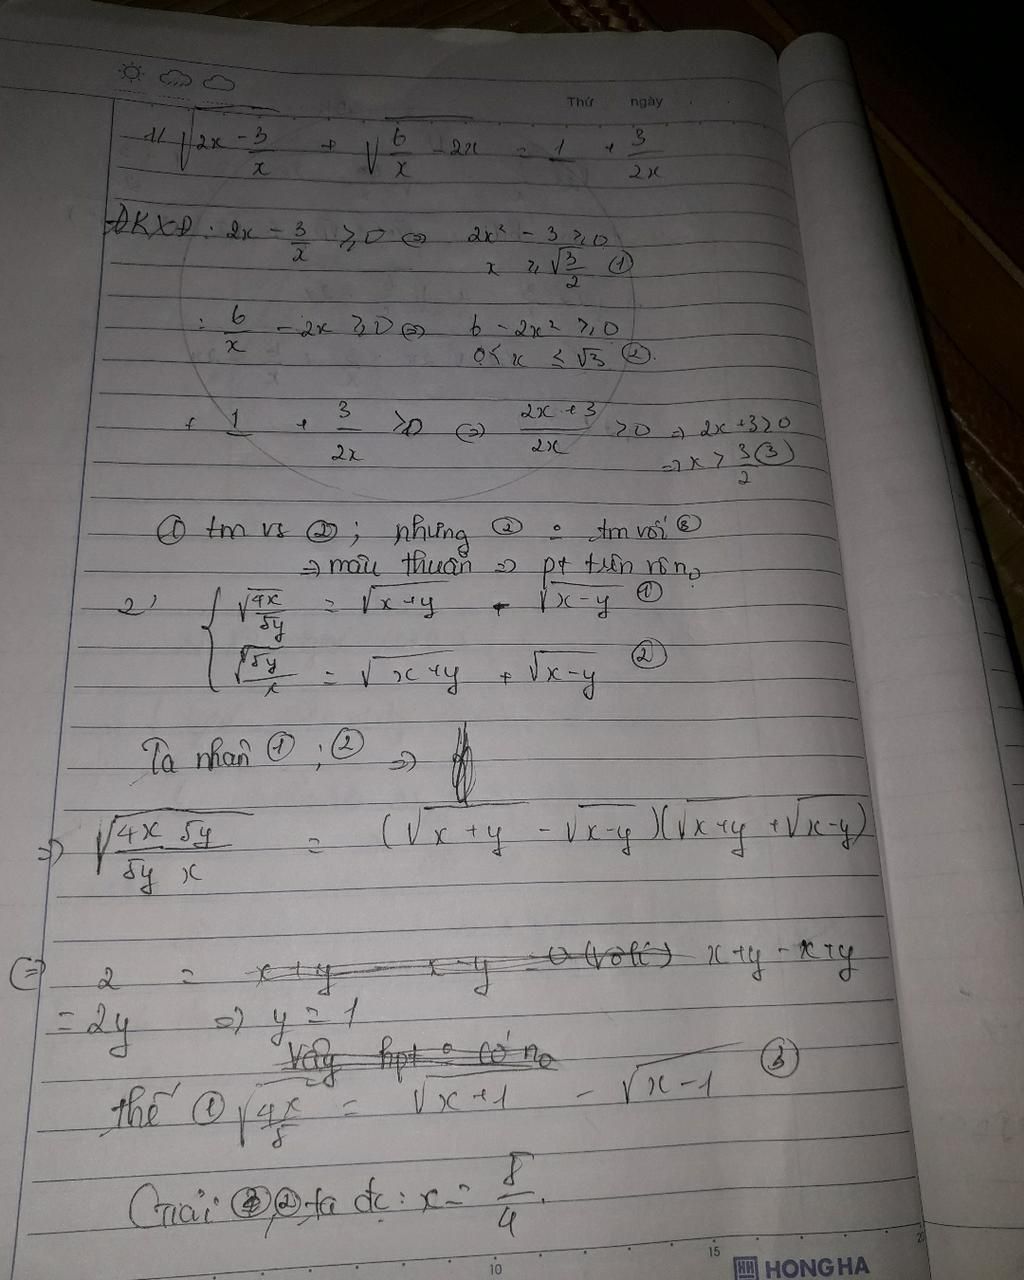 Thứ ngày
1/ √(2x - 3/x) + √(6/x - 2x) = 1 + 3/2x
ĐKXĐ: 2x - 3/x ≥ 0 ⇔ 2x² - 3 ≥ 0
x ≥ √(3/2) ①
: 6/x - 2x ≥ 0 ⇔ 6 - 2x² ≥ 0
0 < x ≤ √3 ②.
+ 1 + 3/2x ≥ 0 ⇔ (2x + 3)/2x ≥ 0 ⇒ 2x + 3 ≥ 0
⇒ x > 3/2 ③
① tm vs ②; nhưng ② o tm với ③
⇒ mâu thuẫn ⇒ pt trên vô no
2) { √(4x/5y) = √(x+y) - √(x-y) ①
√(5y/x) = √(x+y) + √(x-y) ②
Ta nhân ① ; ② ⇒
⇒ √(4x 5y / 5y x) = (√(x+y) - √(x-y))(√(x+y) + √(x-y))
⇔ 2 = x+y - x+y
= 2y ⇒ y = 1
Vậy hpt o có no
thế ① √(4x/5) = √(x+1) - √(x-1) ③
Giải ② ta đc: x = 5/4.
10 15
HH HONG HA